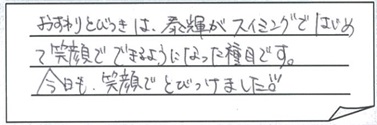 おすわりとびつきは、泰輝がスイミングではじめ
て笑顔でできるようになった種目です。
今日も、笑顔でとびつけました!!